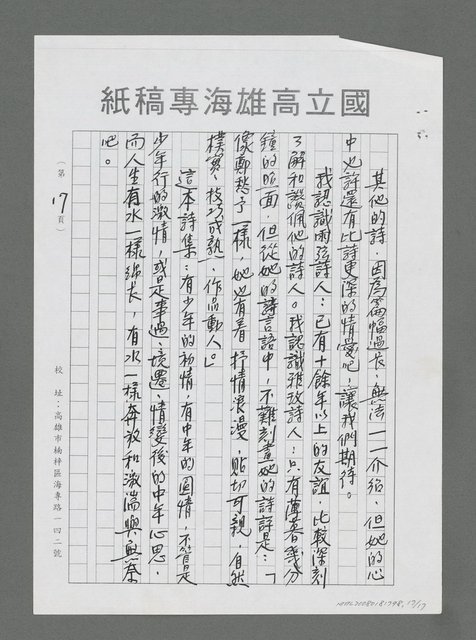 國立高雄海專稿紙
其他的詩，因為篇幅過長，無法一一介紹，但她的心
中也許還有比詩更深的情愛吧，讓我們期待。
我認識雨弦詩人：已有十餘年以上的友誼，比較深刻
了解和讚佩他的詩人。我認識雅玫詩人：只有薄暮幾分
鐘的晤面，但從她的詩言語中，不難刻畫她的詩評是：「
像鄭愁予一樣，她也有着抒情浪漫，貼切可親，自然
樸實、技巧成熟，作品動人」。
這本詩集：有少年的初情，有中年的圓情，不管是
少年行的激情，或是事過、境遷、情變後的中年心思，
而人生有水一樣綿長，有水一樣奔放和激湍與無奈
吧。
（第17頁）
校址：高雄市楠梓區海專路一四二號
17/17